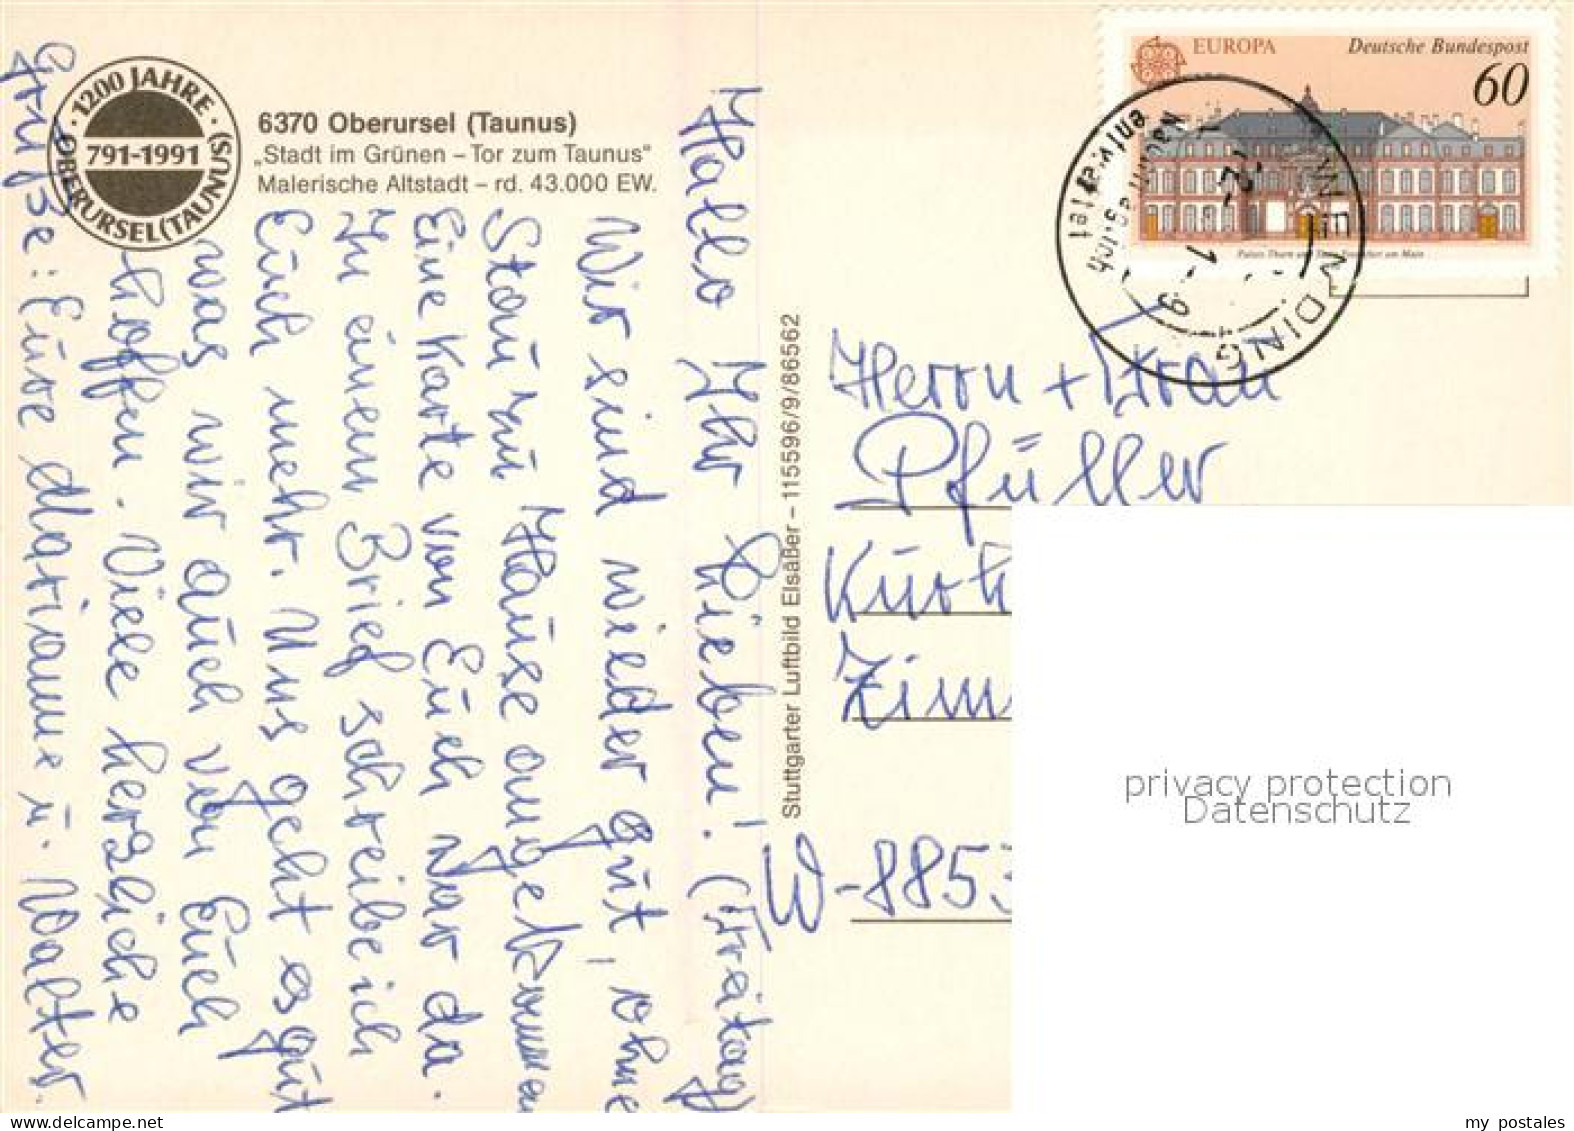 1200 JAHRE
791-1991
OBERURSEL (TAUNUS)
6370 Oberursel (Taunus)
„Stadt im Grünen – Tor zum Taunus“
Malerische Altstadt – rd. 43.000 EW.
Hallo Ihr Lieben! (Freitag)
Wir sind wieder gut, ohne
Stau zu Hause angekommen
Eine Karte von Euch war da.
In einem Brief schreibe ich
Euch mehr. Uns geht es gut
was wir auch von Euch
hoffen. Viele herzliche
Grüße: Eure Marianne u. Walter.
Stuttgarter Luftbild Elsäßer – 115596/9/86562
EUROPA
Deutsche Bundespost
60
Palais Thurn und Taxis Frankfurt am Main
Nachträglich
entwertet
Herrn + Frau
Pfüller
W-885
privacy protection
Datenschutz
my postales